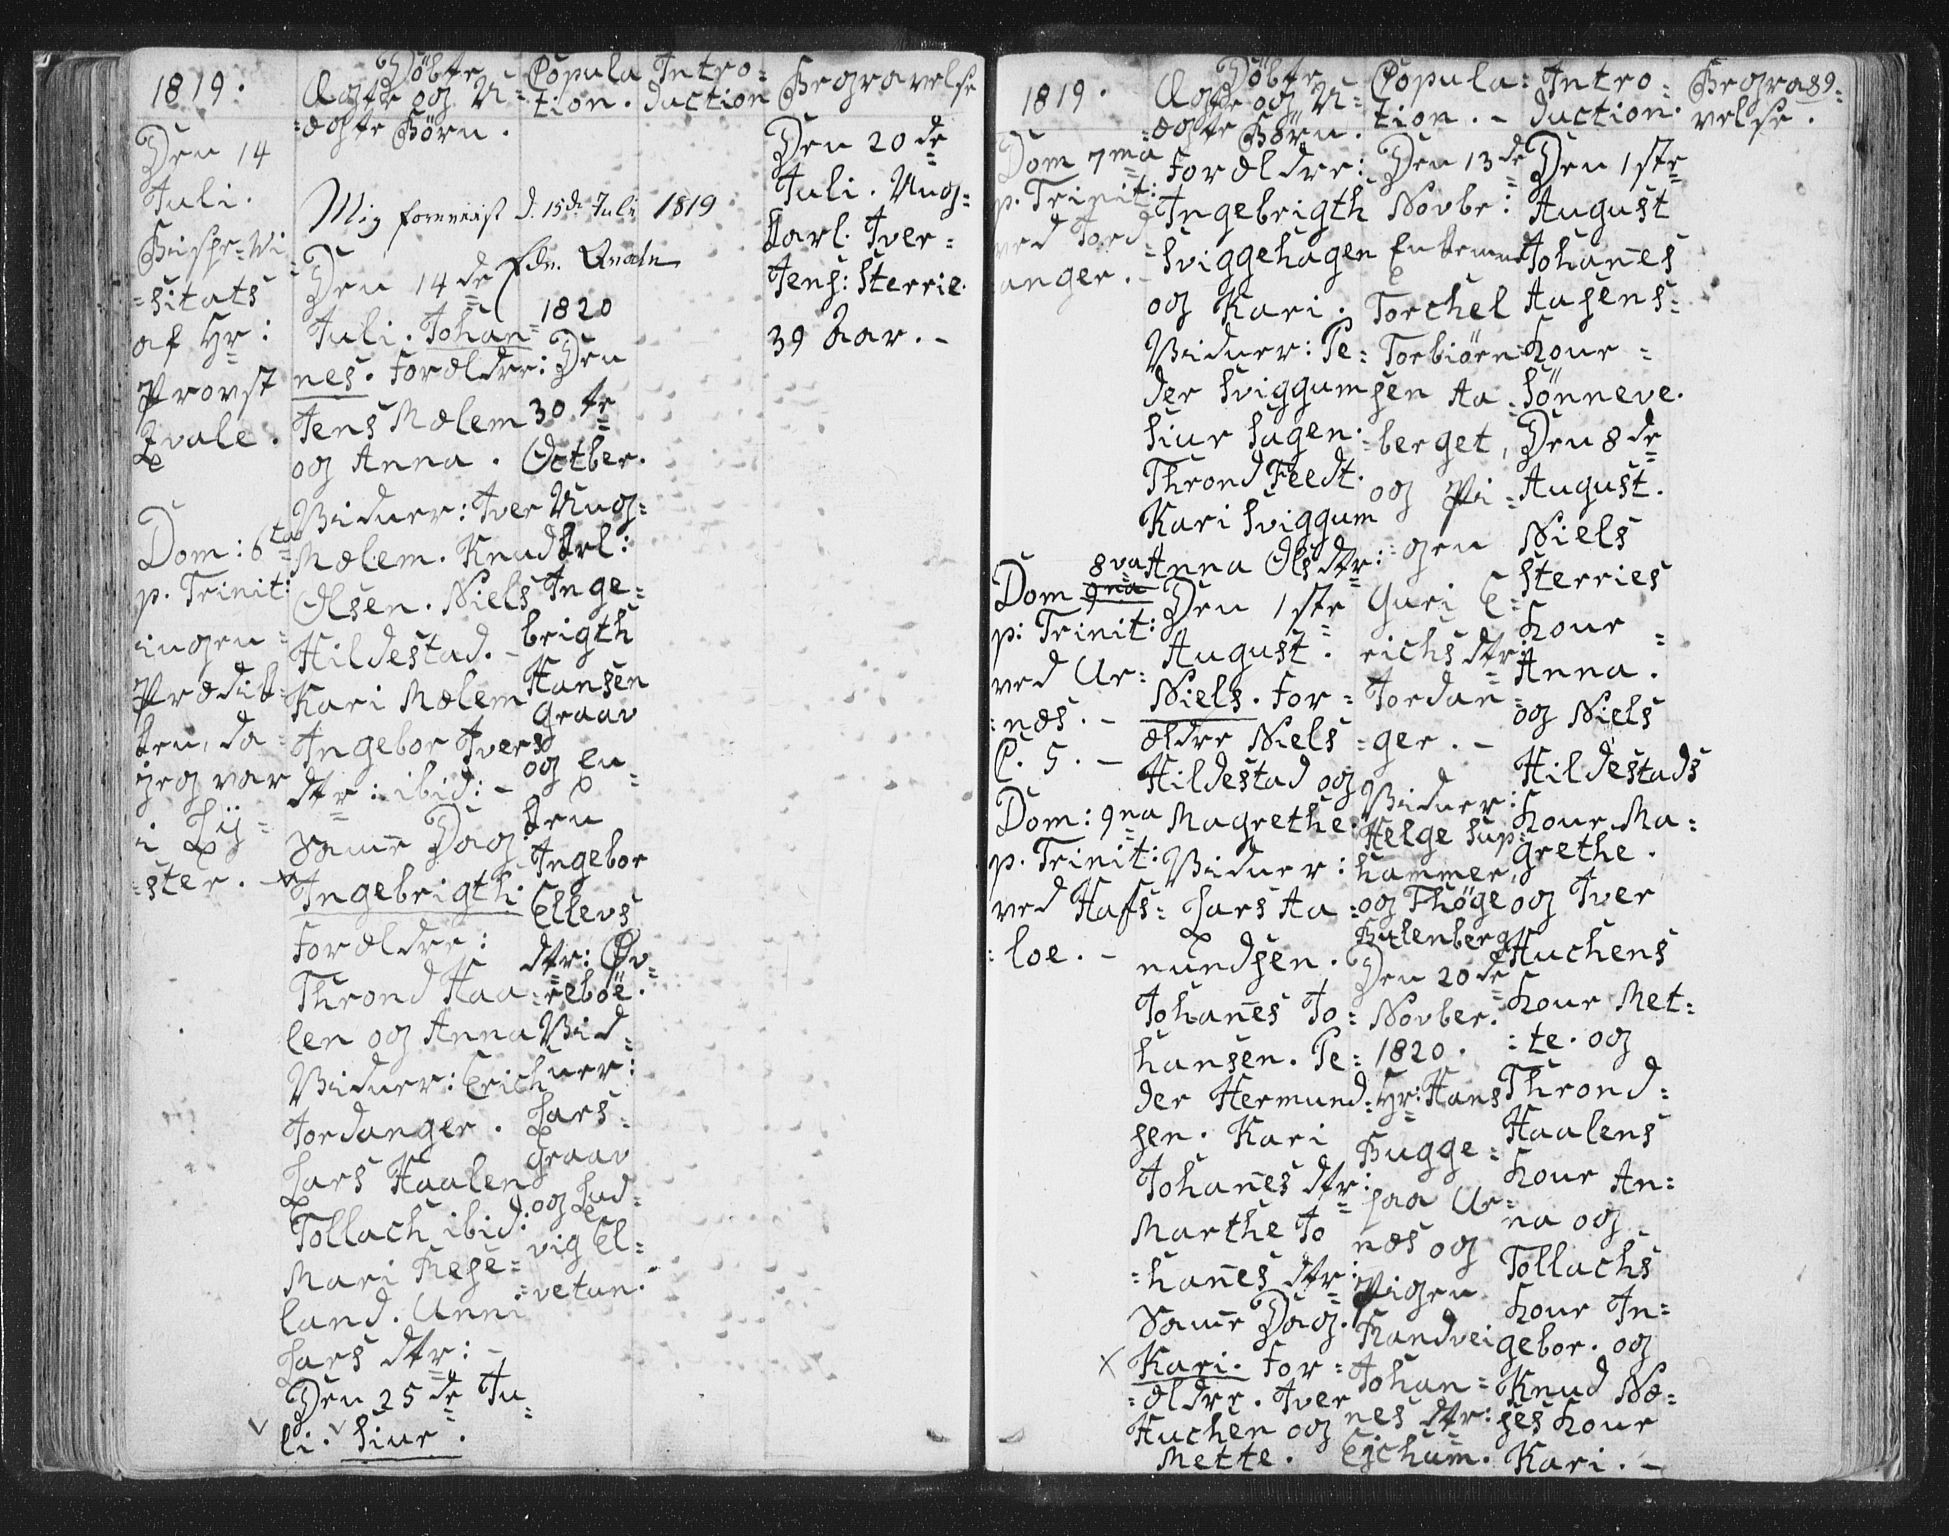 1819.
Den 14
Juli.
Bispe-Vi
=sitats
af Hr:
Provst
Qvale.
Dom: 6ta
p. Trinit:
ingen
Prædik=
ken, da
jeg var
i Ly=
=ster. -
Døbte
Ægte og U=
=ægte Børn.
Mig foreviist d. 15de Juli 1819
Den 14 de
Juli. Johan=
nes. Forældre:
Jens Mælem
og Anna.
Vidner: Iver
Mælem. Knud
Olsen. Niels
Hildestad. -
Kari Mælem
Ingebor Ivers
dtr: ibid: -
Same Dag
Ingebrigth
Forældre:
Thrond Haa=
len og Anna
Vidner: Erich
Jordanger.
Lars Haalen
Tollach ibid:
Mari Rese=
land. Unni
Lars dtr: -
Den 25 de Ju=
li. Siur.
Copula
tion.
1820
Den
30 te
Octber.
Ung=
karl:
Inge=
brigth
Hansen
Graav
og En=
ken
Ingebor
Ellevs
dtr: Øv=
=reboe.
Vid=
ner:
Lars
Graav
og Lud=
vig El=
=vetun.
Intro=
duction
Begravelse
Den 20 de
Juli. Ung=
karl. Iver
Jens: Sterrie.
39 Aar. -
1819.
Dom 7ma
p. Trinit:
ved Jord
anger. -
Dom 8va 9na
p: Trinit:
ved Ur=
=næs. -
C. 5. -
Dom: 9na
p. Trinit:
ved Hafs=
=loe. -
Døbte
Ægte og U=
=ægte Børn.
Forældre:
Ingebrigth
Sviggehagen
og Kari.
Vidner: Pe=
der Sviggum
Siur Hagen.
Thrond Feedt.
Kari Sviggum
Anna Ols dtr:
Den 1ste
August.
Niels. For=
ældre Niels
Hildestad og
Magrethe.
Vidner:
Lars Aa=
nundsen.
Johanes Jo=
hansen. Pe=
der Hermund=
sen. Kari
Johanes dtr:
Marthe Jo
=hanes dtr:
Same Dag.
Kari. For=
=ældre. Iver
Huchen og
Mette.
Popula=
tion. -
Den 13 de
Novbr:
Enkemand
Torchel
Torbiørn
sen Aa=
=berget,
og Pi=
=gen
Guri E=
richs dtr:
Jordan=
=ger. -
Vidner:
Helge Sup=
hammer,
og Thøge
Bulenberg
Den 20 de
Novber.
1820.
Hr: Hans
Bugge
paa Ur=
næs og
Pigen
Randvei
Johan=
nes dtr:
Eschum.
Intro=
duction.
Den 1ste
August
Johanes
Aasens
Kone
Sønneve.
Den 8 de
August.
Niels
Sterries
Kone
Anna.
og Niels
Hildestads
Kone Ma=
grethe.
og Iver
Huchens
Kone Met=
=te. og
Thrond=
Haalens
Kone An=
na og
Tollachs
Kone In=
gebor. og
Knud Næ=
ses Kone
Kari. -
Begra=
velse.
89.